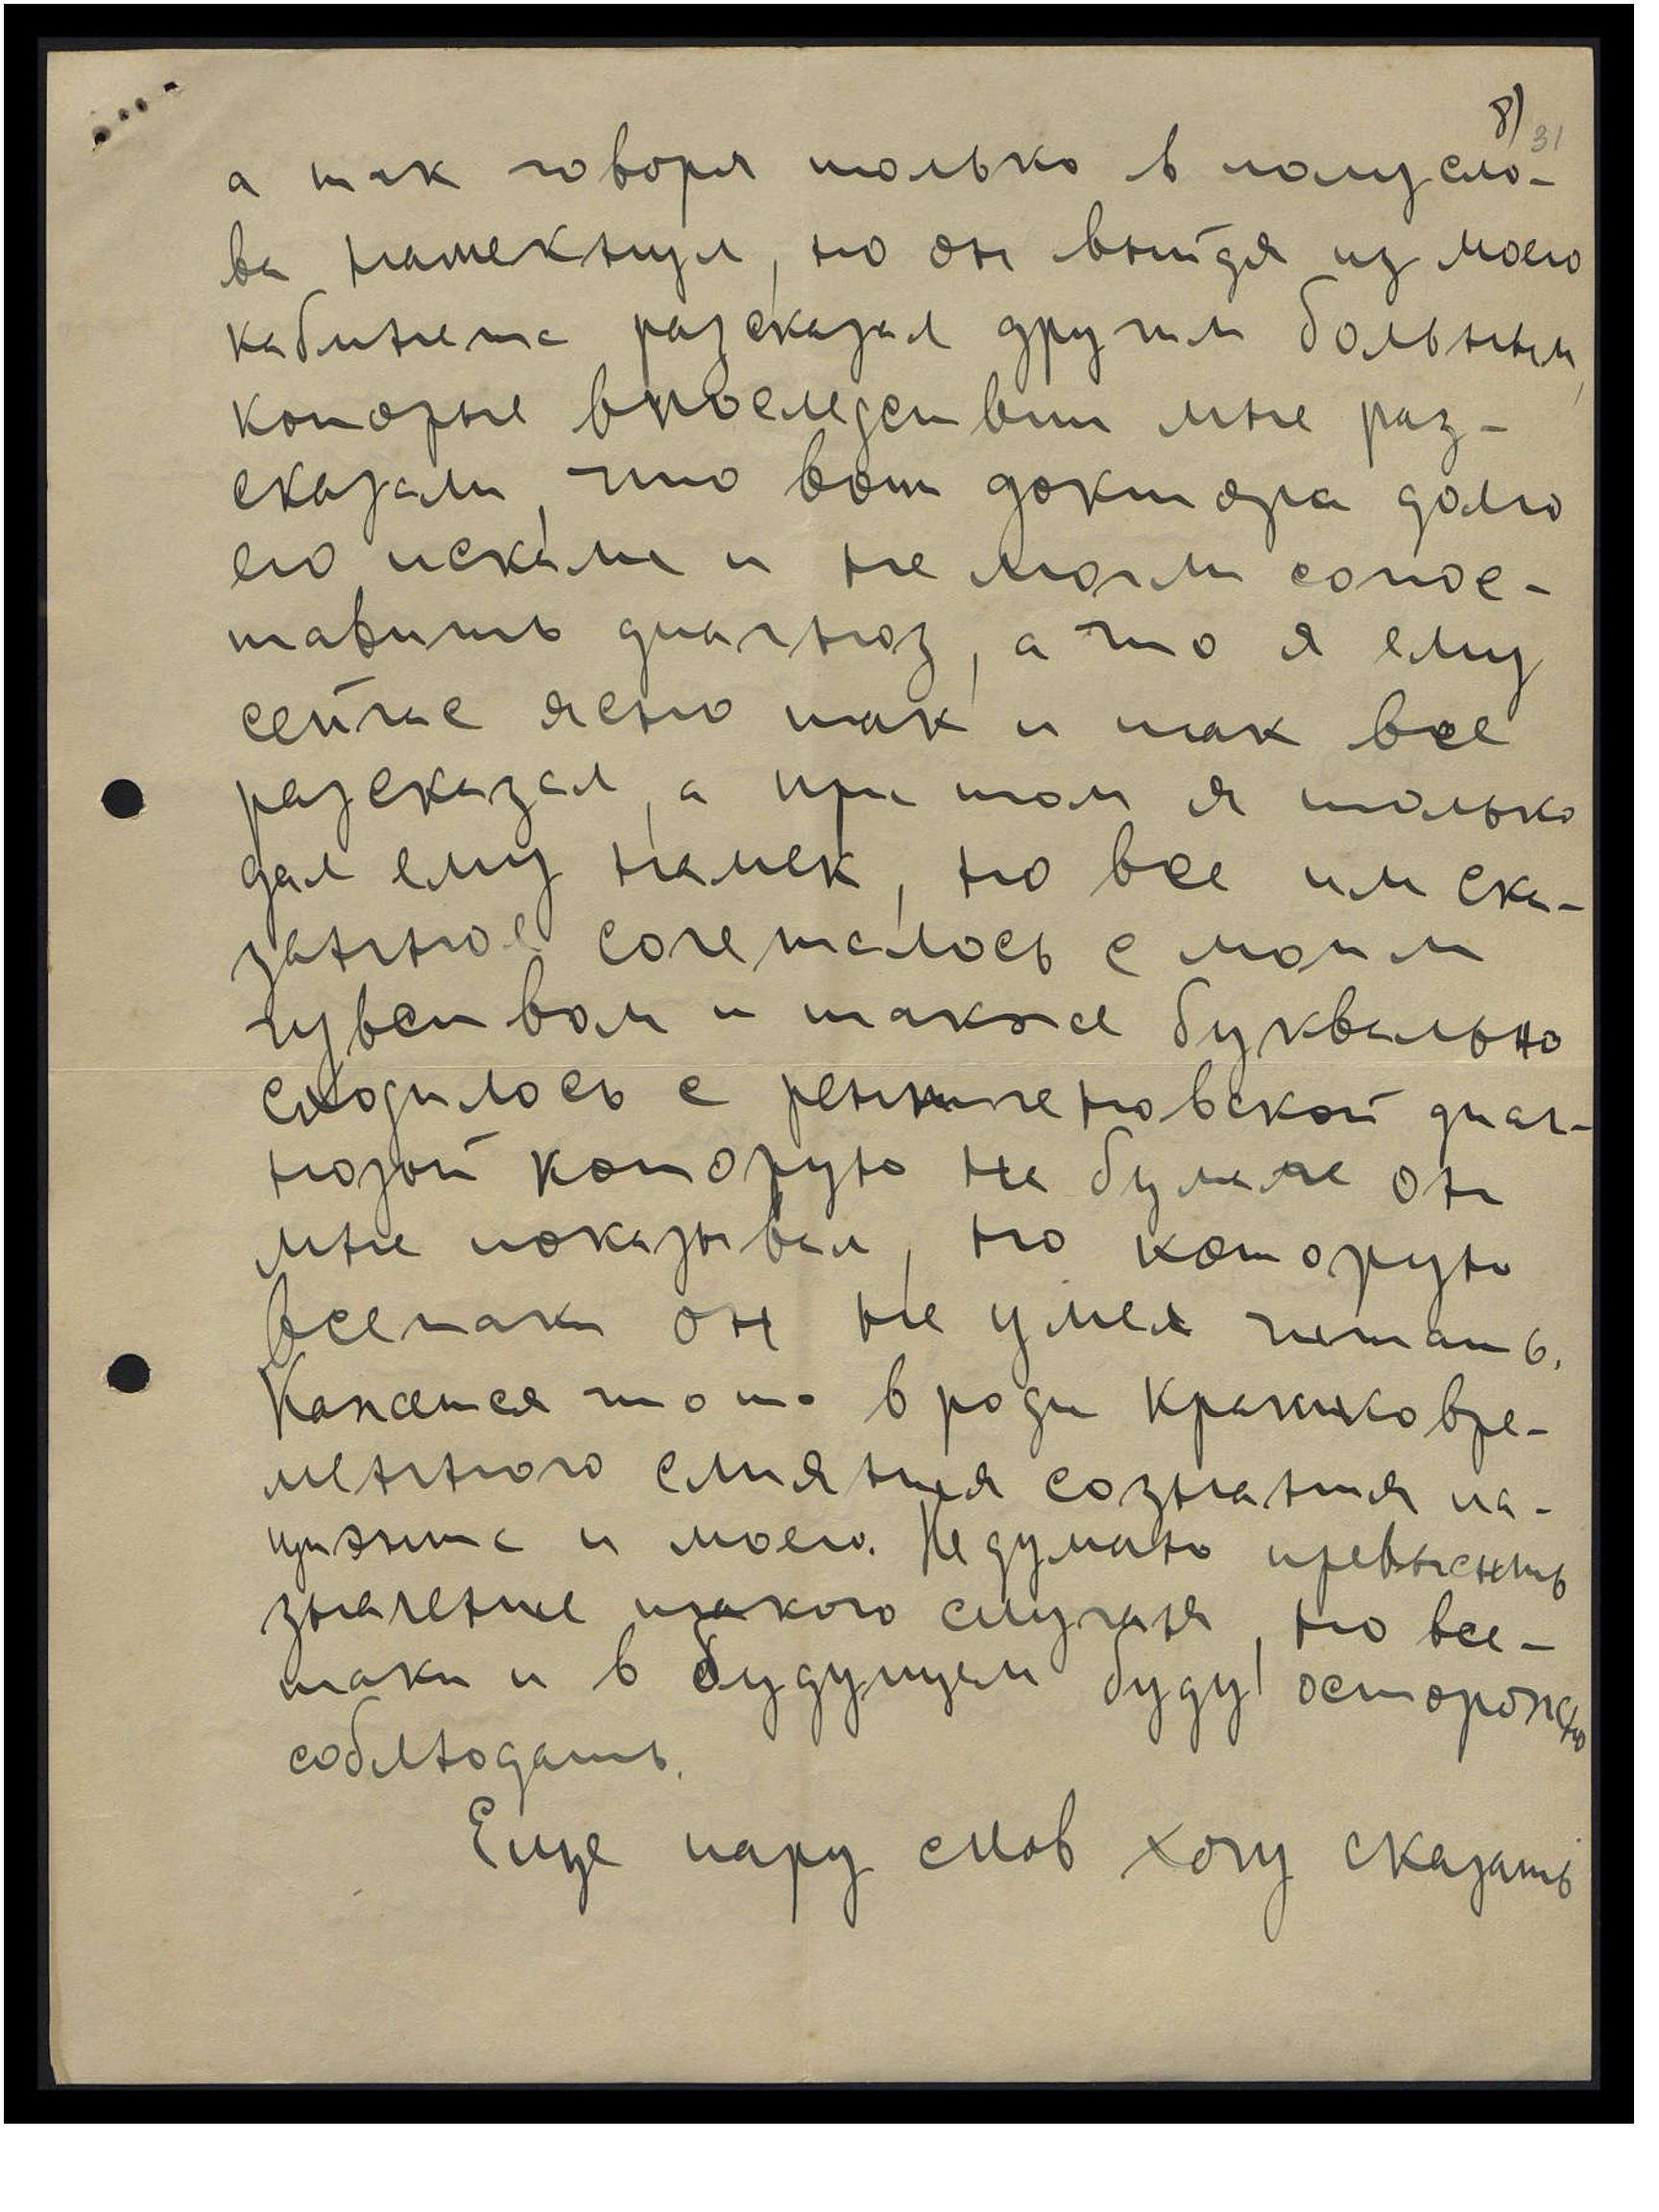 8) 31
а так говоря только в полусло-
ва намекнул, но он выйдя из моего
кабинета разсказал другим больным,
которые впоследствии мне раз-
сказали, что вот доктора долго
его искали и не могли сопос-
тавить диагноз, а что я ему
сейчас ясно так и так все
разсказал, а при том я только
дал ему намек, но все им ска-
занное сочеталось с моим
чувством и также буквально
сходилось с рентгеновской диаг-
нозой которую на бумаге он
мне показывал, но которую
всетаки он не умел читать.
Кажется что то вроди кратковре-
менного слияния сознания па-
циэнта и моего. Не думаю превысить
значение такого случая, но все-
таки и в будущем буду осторожно
соблюдать.
Еще пару слов хочу сказать